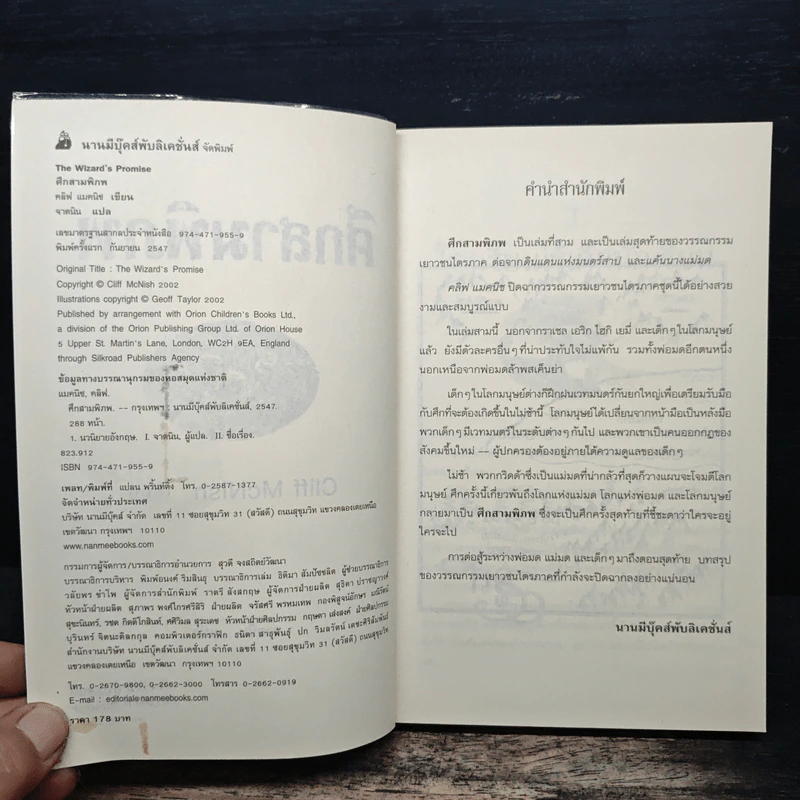 นานมีบุ๊คส์พับลิเคชั่นส์ จัดพิมพ์
The Wizard's Promise
ศึกสามพิภพ
คลิฟ แมคนิช เขียน
จาตนิน แปล
เลขมาตรฐานสากลประจำหนังสือ 974-471-955-9
พิมพ์ครั้งแรก กันยายน 2547
Original Title : The Wizard's Promise
Copyright © Cliff McNish 2002
Illustrations copyright © Geoff Taylor 2002
Published by arrangement with Orion Children's Books Ltd.,
a division of the Orion Publishing Group Ltd. of Orion House
5 Upper St. Martin's Lane, London, WC2H 9EA, England
through Silkroad Publishers Agency
ข้อมูลทางบรรณานุกรมของหอสมุดแห่งชาติ
แมคนิช, คลิฟ.
ศึกสามพิภพ. -- กรุงเทพฯ : นานมีบุ๊คส์พับลิเคชั่นส์, 2547.
288 หน้า.
1. นวนิยายอังกฤษ. I. จาตนิน, ผู้แปล. II. ชื่อเรื่อง.
823.912
ISBN 974-471-955-9
เพลท/พิมพ์ที่ แปลน พริ้นท์ติ้ง โทร. 0-2587-1377
จัดจำหน่ายทั่วประเทศ
บริษัท นานมีบุ๊คส์ จำกัด เลขที่ 11 ซอยสุขุมวิท 31 (สวัสดี) ถนนสุขุมวิท แขวงคลองเตยเหนือ
เขตวัฒนา กรุงเทพฯ 10110
www.nanmeebooks.com
กรรมการผู้จัดการ/บรรณาธิการอำนวยการ สุวดี จงสถิตย์วัฒนา
บรรณาธิการบริหาร พิมพ์อนงค์ ริมสินธุ บรรณาธิการเล่ม ธิติมา สัมปัชชลิต ผู้ช่วยบรรณาธิการ
วลัยพร ชำโพ ผู้จัดการสำนักพิมพ์ ราตรี ลังสกฤษ ผู้จัดการฝ่ายผลิต สุธิดา
หัวหน้าฝ่ายผลิต สุภาพร พงศ์ไกรศรีสิริ ฝ่ายผลิต จรัสศรี พรหมเทพ กองพิสูจน์อักษร
สุขะนินทร์, รชต กิตติโกสินท์, ศศิวิมล สุระเดช หัวหน้าฝ่ายศิลปกรรม กฤษดา เส่งสงค์ ฝ่ายศิลปกรรม
บุรินทร์ จิตนะดิลกกุล คอมพิวเตอร์กราฟิก ธนิดา สาธุพันธุ์ ปก วิมลวัตน์ เดชะศิริสัมพันธ์
สำนักงานบริษัท นานมีบุ๊คส์ จำกัด เลขที่ 11 ซอยสุขุมวิท 31 (สวัสดี) ถนนสุขุมวิท
แขวงคลองเตยเหนือ เขตวัฒนา กรุงเทพฯ 10110
โทร. 0-2670-9800, 0-2662-3000 โทรสาร 0-2662-0919
E-mail : editorial@nanmeebooks.com
ราคา 178 บาท
คำนำสำนักพิมพ์
ศึกสามพิภพ เป็นเล่มที่สาม และเป็นเล่มสุดท้ายของวรรณกรรม
เยาวชนไตรภาค ต่อจากดินแดนแห่งมนตร์สาป และแค้นนางแม่มด
คลิฟ แมคนิช ปิดฉากวรรณกรรมเยาวชนไตรภาคชุดนี้ได้อย่างสวย
งามและสมบูรณ์แบบ
ในเล่มสามนี้ นอกจากราเชล เอริก ไฮกิ เยมี่ และเด็กๆ ในโลกมนุษย์
แล้ว ยังมีตัวละครอื่นๆ ที่น่าประทับใจไม่แพ้กัน รวมทั้งพ่อมดอีกตนหนึ่ง
นอกเหนือจากพ่อมดลำพสเค็นย่า
เด็กๆ ในโลกมนุษย์ต่างก็ฝึกฝนเวทมนตร์กันยกใหญ่เพื่อเตรียมรับมือ
กับศึกที่จะต้องเกิดขึ้นในไม่ช้านี้ โลกมนุษย์ได้เปลี่ยนจากหน้ามือเป็นหลังมือ
พวกเด็กๆ มีเวทมนตร์ในระดับต่างๆ กันไป และพวกเขาเป็นคนออกกฎของ
สังคมขึ้นใหม่ -- ผู้ปกครองต้องอยู่ภายใต้ความดูแลของเด็กๆ
ไม่ช้า พวกกริดด้าซึ่งเป็นแม่มดที่น่ากลัวที่สุดก็วางแผนจะโจมตีโลก
มนุษย์ ศึกครั้งนี้เกี่ยวพันถึงโลกแห่งแม่มด โลกแห่งพ่อมด และโลกมนุษย์
กลายมาเป็น ศึกสามพิภพ ซึ่งจะเป็นศึกครั้งสุดท้ายที่ชี้ชะตาว่าใครจะอยู่
ใครจะไป
การต่อสู้ระหว่างพ่อมด แม่มด และเด็กๆ มาถึงตอนสุดท้าย บทสรุป
ของวรรณกรรมเยาวชนไตรภาคที่กำลังจะปิดฉากลงอย่างแน่นอน
นานมีบุ๊คส์พับลิเคชั่นส์